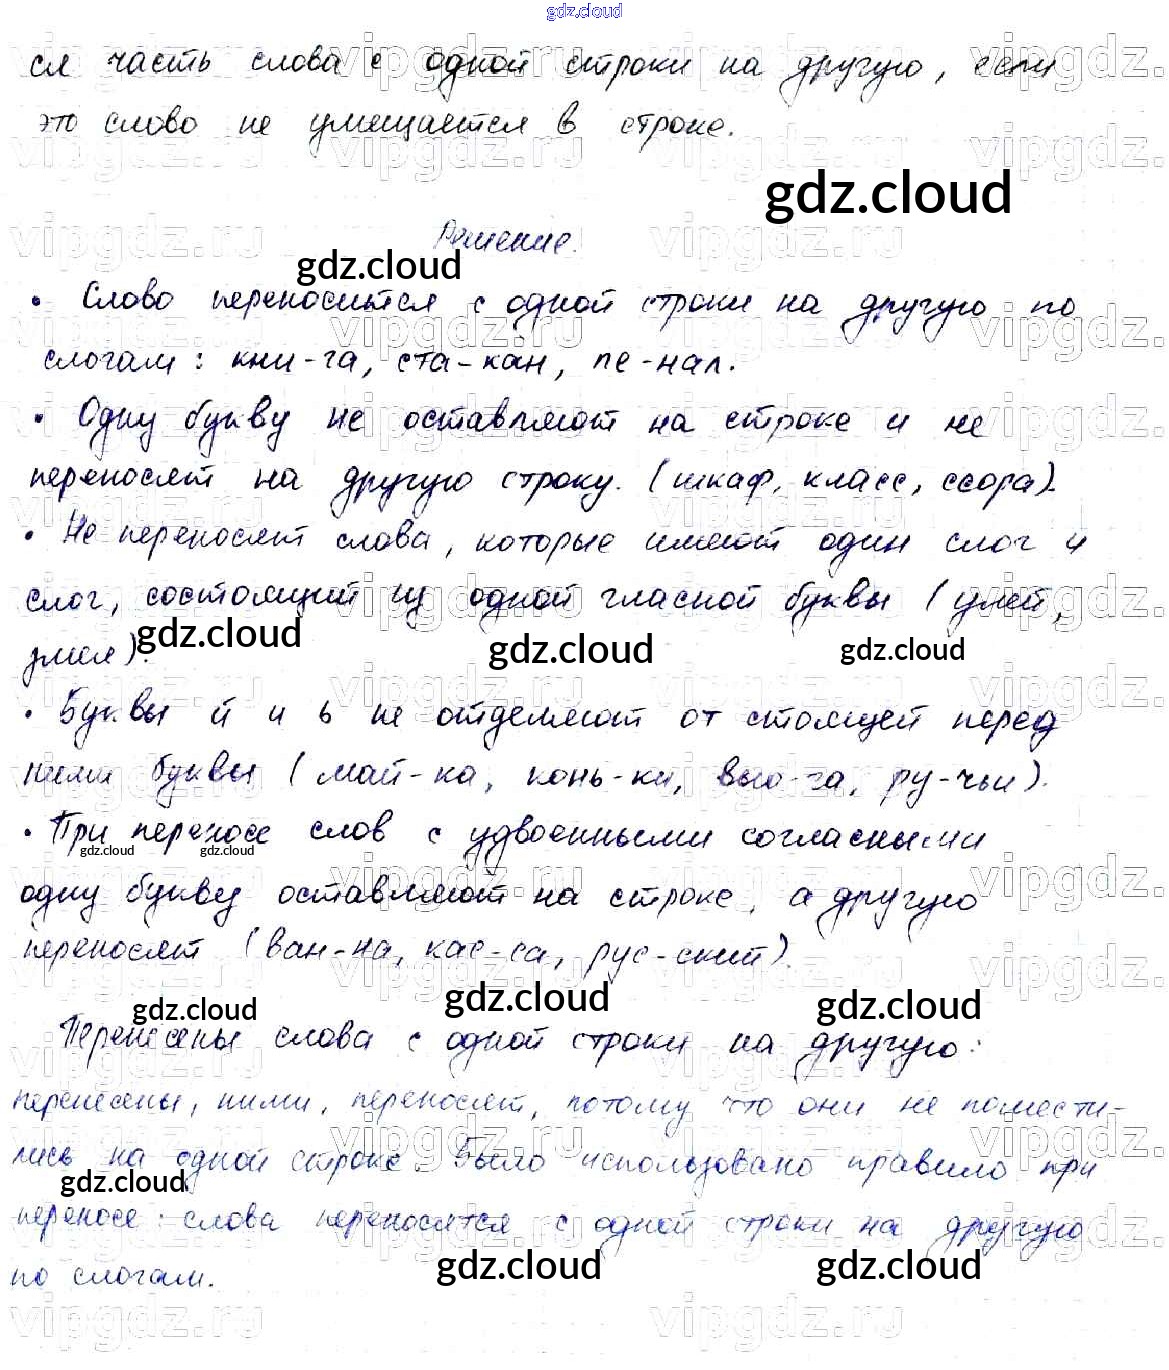 gdz.cloud
ся часть слова с одной строки на другую, если
это слово не умещается в строке.
gdz.cloud
Решение.
gdz.cloud
• Слово переносится с одной строки на другую по
слогам: кни-га, ста-кан, пе-нал.
• Одну букву не оставляют на строке и не
переносят на другую строку. (шкаф, класс, ссора).
• Не переносят слова, которые имеют один слог и
слог, состоящий из одной гласной буквы (улей,
змея).
gdz.cloud gdz.cloud gdz.cloud
• Буквы й и ь не отделяют от стоящей перед
ними буквы (май-ка, конь-ки, вью-га, ру-чьи).
• При переносе слов с удвоенными согласными
gdz.cloud gdz.cloud
одну букву оставляют на строке, а другую
переносят (ван-на, кас-са, рус-ский).
gdz.cloud gdz.cloud gdz.cloud
Перенесены слова с одной строки на другую:
перенесены, ними, переносят, потому что они не помести-
лись на одной строке. Было использовано правило при
gdz.cloud
переносе: слова переносятся с одной строки на другую
gdz.cloud gdz.cloud
по слогам.